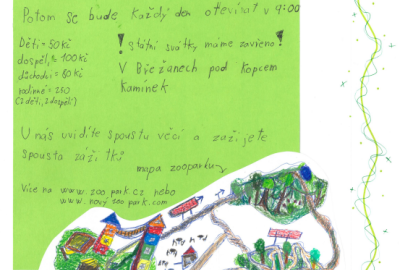 Potom se bude každý den otevírat v 9:00
Děti = 50 Kč
dospělí = 100 Kč
důchodci = 80 Kč
rodinné = 250
(2 děti, 2 dospělí)
! státní svátky máme zavřeno !
V Břežanech pod kopcem
Kamínek
U nás uvidíte spoustu věcí a zažijete
spousta zážitků
mapa zooparku
Více na www.zoo park.cz nebo
www.nový zoo park.com